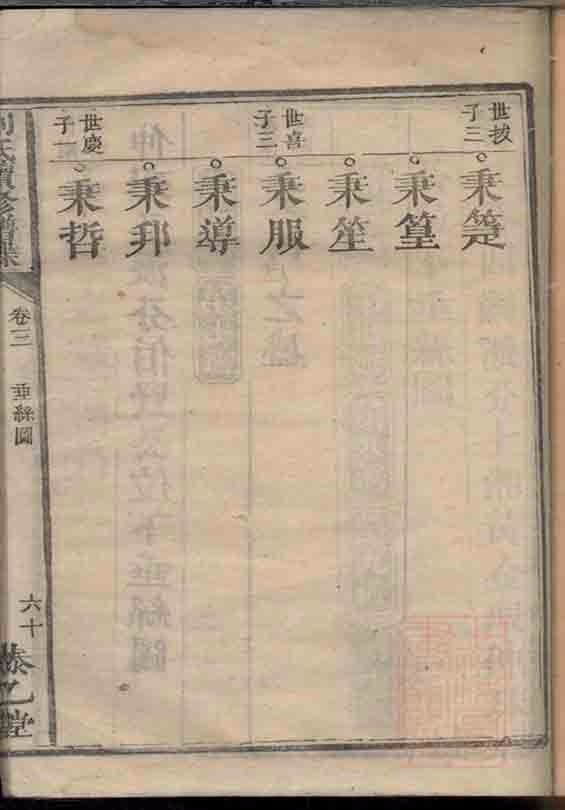 世拔
子三
秉筵
秉篁
秉笙
世喜
子三
秉服
秉導
秉
世慶
子一
秉哲
氏續修譜
卷三
垂絲圖
六十
泰乙堂